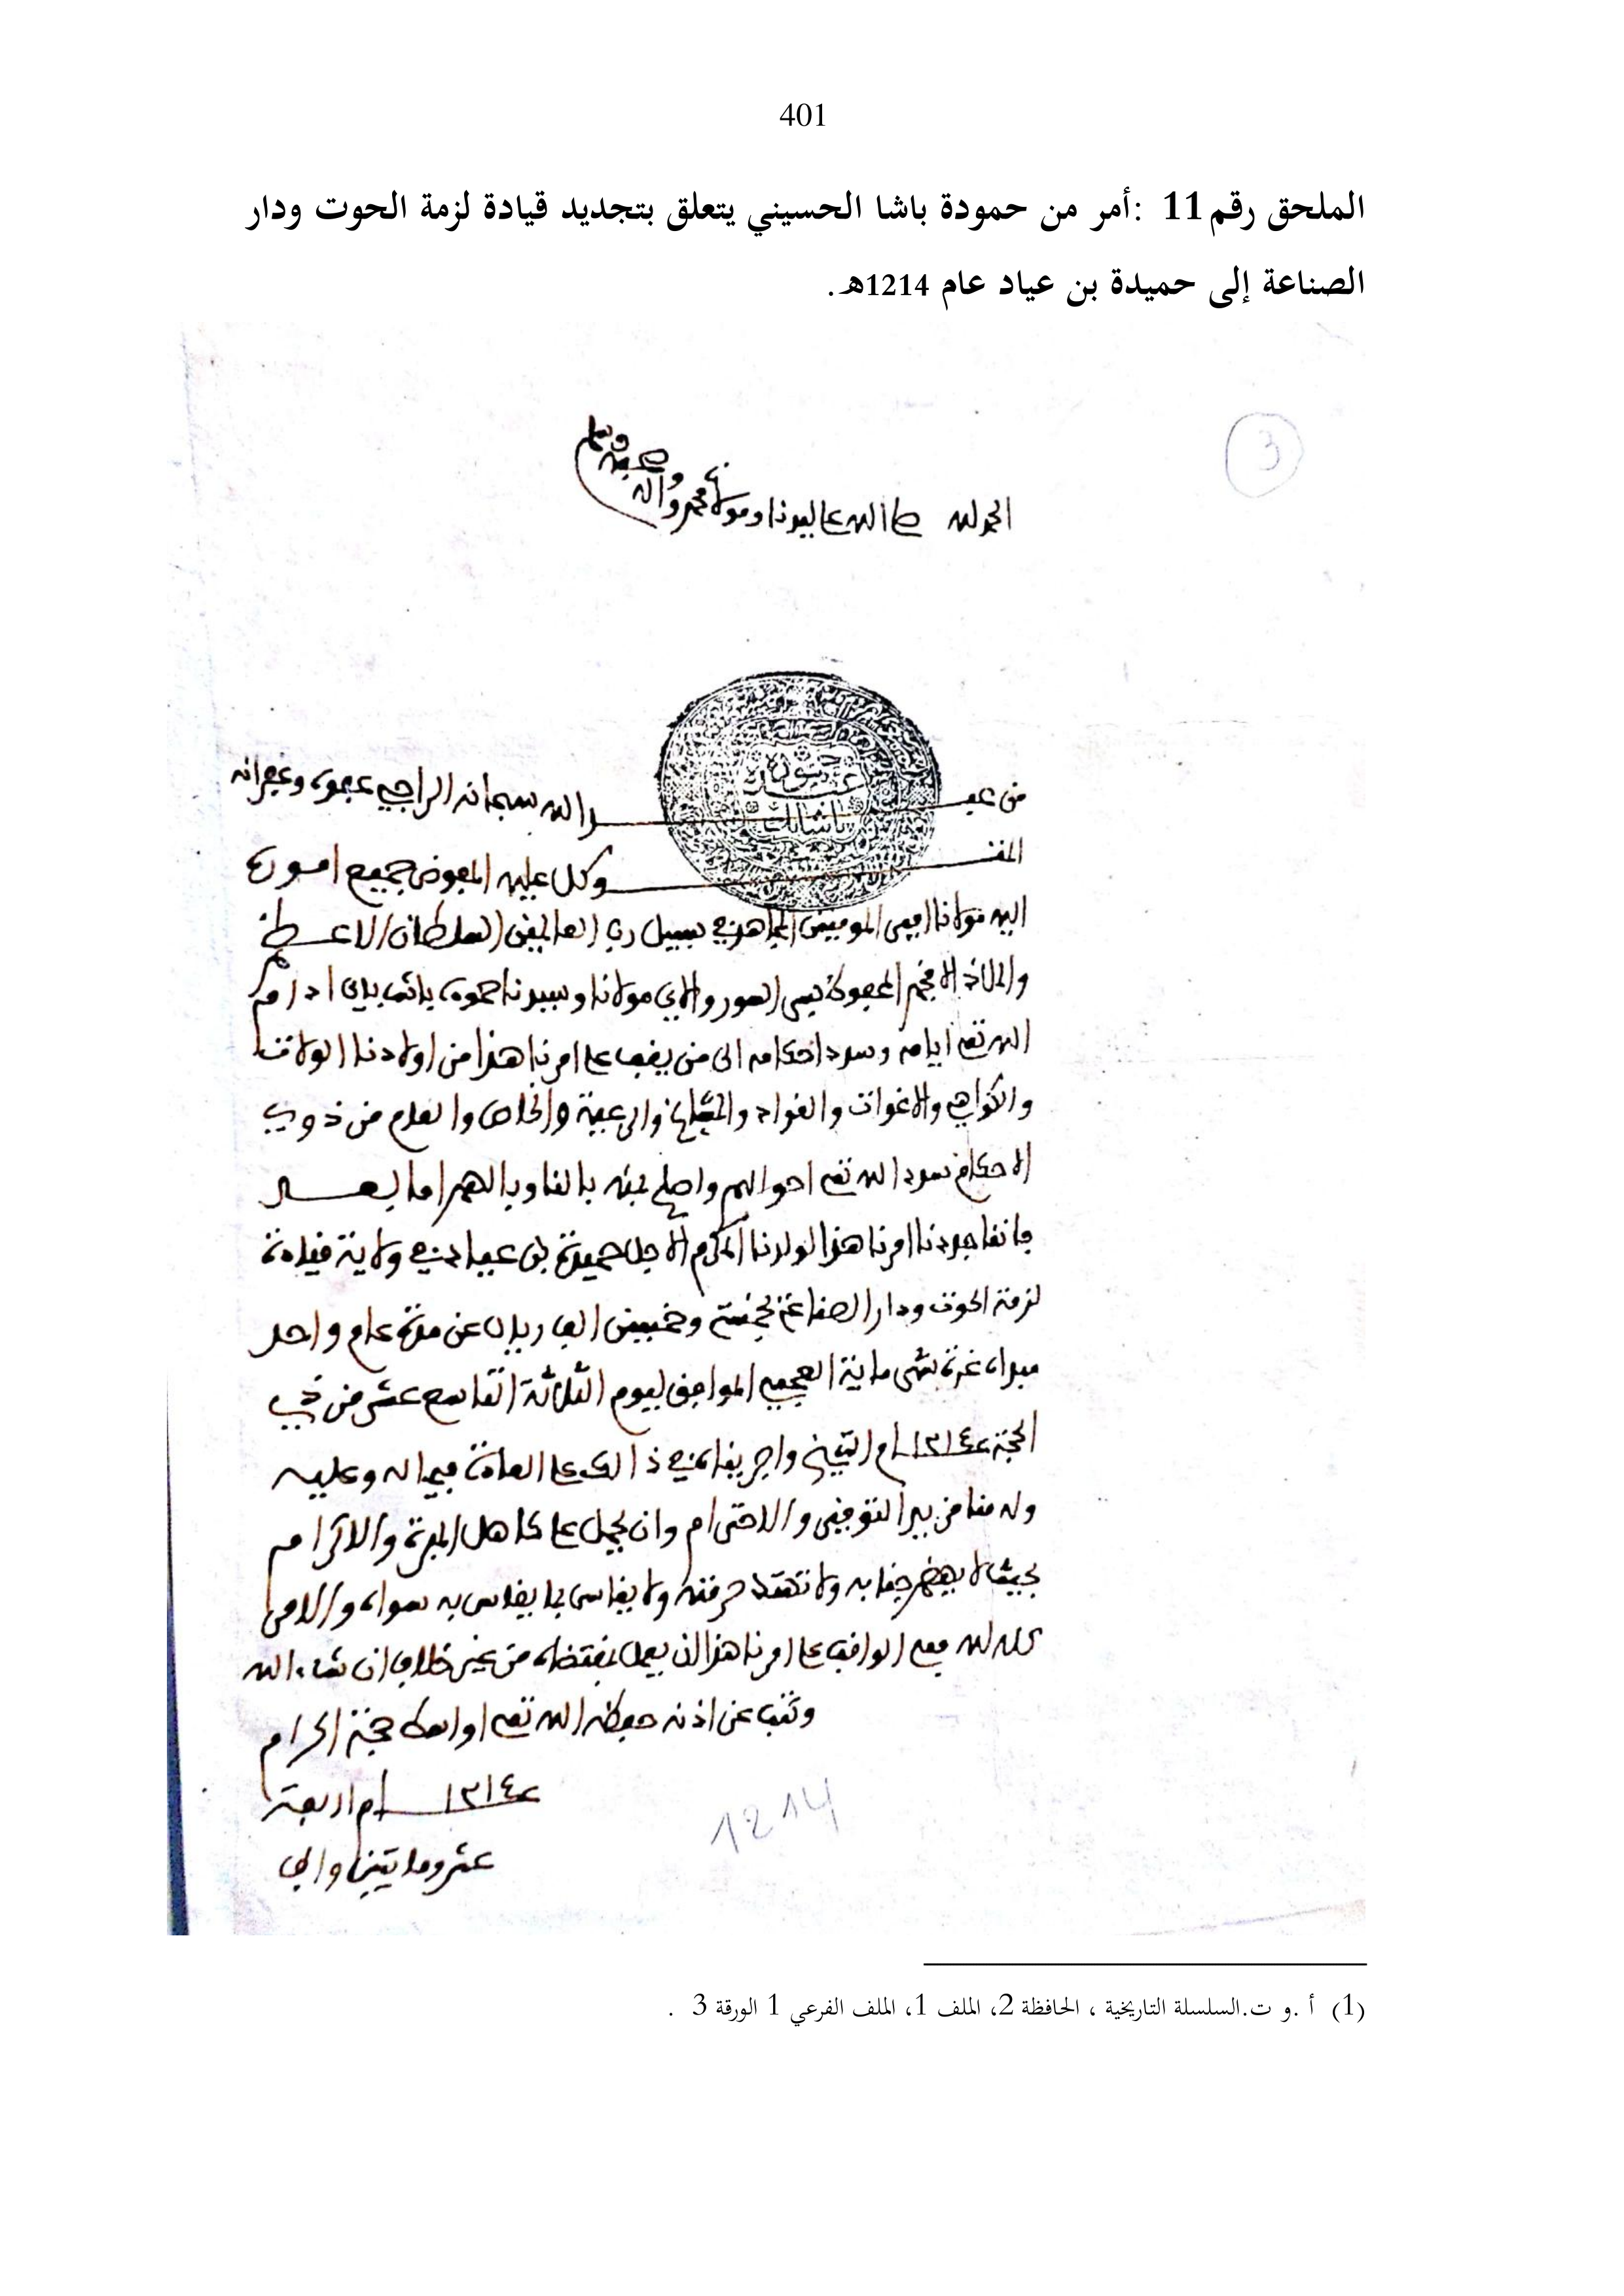 401
الملحق رقم 11 :أمر من حمودة باشا الحسيني يتعلق بتجديد قيادة لزمة الحوت ودار
الصناعة إلى حميدة بن عياد عام 1214هـ.
3
الحمد لله صلى الله على سيدنا ومولانا محمد وآله وصحبه وسلم
حمودة
باشا
من عبد الله سبحانه الراجي عفوه وغفرانه
المتوكل عليه المفوض جميع اموره
اليه مولانا امير المومنين المجاهد في سبيل رب العالمين السلطان الاعظم
والملاذ الافخم المحفوظ مولانا وسيدنا حموده باشا باي ادام
الله تعلى ايامه وسدد احكامه الى من يقف على امرنا هذا من اولادنا الولات
والكواهي والاغوات والقواد والمشايخ والرعية والخاص والعام من ذوي
الاحكام سدد الله تعلى احوالهم واصلح بمنه بالنا وبالهم اما بعد
فاننا جددنا امرنا هذا لولدنا المكرم الاجل حميدة بن عياد في ولاية قيادة
لزمة الحوت ودار الصناعة بخمسة وخمسين الف ريال عن مدة عام واحد
مبداه غرة شهر ماية العجمي الموافق ليوم الثلاثة التاسع عشر من ذي
الحجة عام ١٢١٤ التاريخ واجريناه في ذالك على العادة فيما له وعليه
وله منا مزيد التوقير والاحترام وان يحمل على كاهل المبرة والاكرام
بحيث لا يهضم جنابه ولا تنتهك حرمته ولا يقاس بما يقاس به سواه والامر
كله لله فعلى الواقف على امرنا هذا ان يعمل بمقتضاه من غير خلاف ان شاء الله
وكتب عن اذنه حفظه الله تعلى اواسط حجة الحرام
عام ١٢١٤ اربعة
عشر ومايتين والف
1214
(1) أ .و ت.السلسلة التاريخية ، الحافظة 2، الملف 1، الملف الفرعي 1 الورقة 3 .